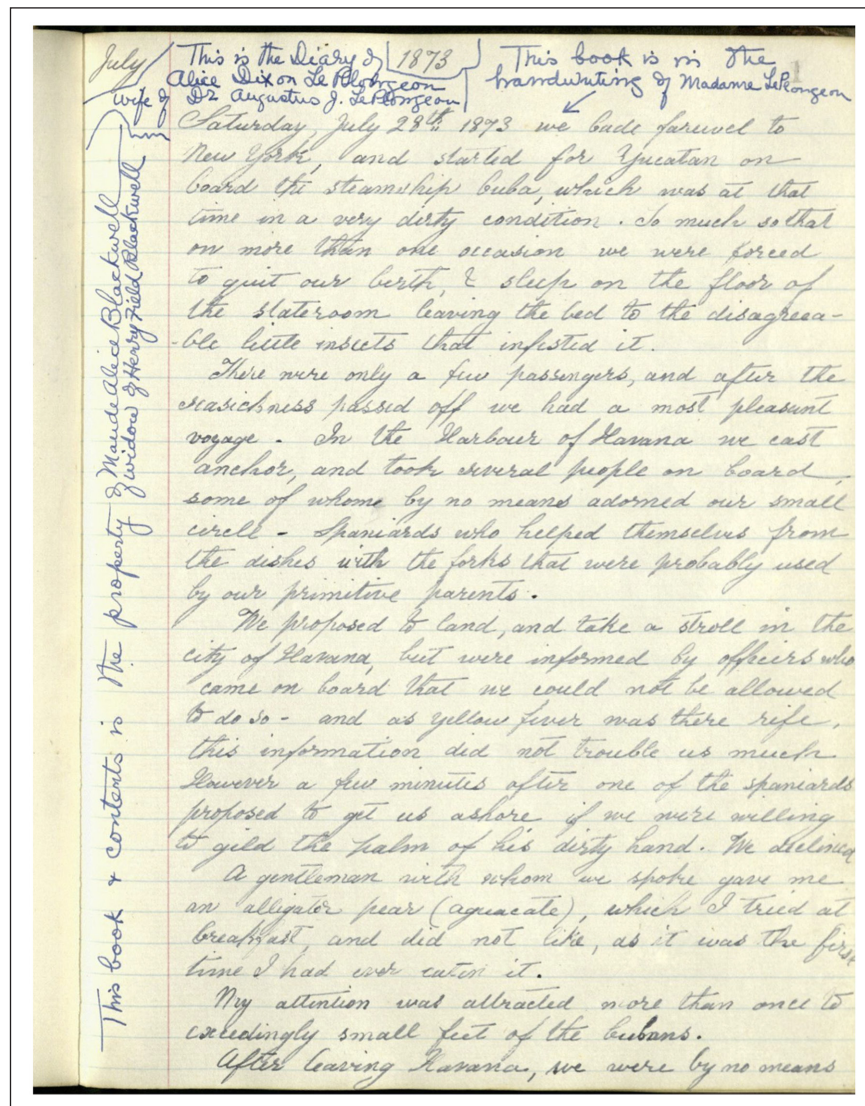 July
This is the Diary of
Alice Dixon Le Plongeon
wife of Dr Augustus J. Le Plongeon
1873
This book is in the
handwriting of Madame LePlongeon
1
Saturday, July 28th 1873 we bade farewel to
New York, and started for Yucatan on
board the steamship Cuba, which was at that
time in a very dirty condition. So much so that
on more than one occasion we were forced
to quit our berth, & sleep on the floor of
the stateroom leaving the bed to the disagreea-
-ble little insects that infested it.
There were only a few passengers, and after the
seasickness passed off we had a most pleasant
voyage - In the Harbour of Havana we cast
anchor, and took several people on board,
some of whome by no means adorned our small
circle - Spaniards who helped themselves from
the dishes with the forks that were probably used
by our primitive parents.
We proposed to land, and take a stroll in the
city of Havana, but were informed by officers who
came on board that we could not be allowed
to do so - and as yellow fever was there rife,
this information did not trouble us much
However a few minutes after one of the spaniards
proposed to get us ashore if we were willing
to gild the palm of his dirty hand. We declined
A gentleman with whom we spoke gave me
an alligator pear (aguacate), which I tried at
breakfast, and did not like, as it was the first
time I had ever eaten it.
My attention was attracted more than once to
exceedingly small feet of the Cubans.
After leaving Havana, we were by no means
This book & contents is the property of Maude Alice Blackwell
widow of Henry Field Blackwell